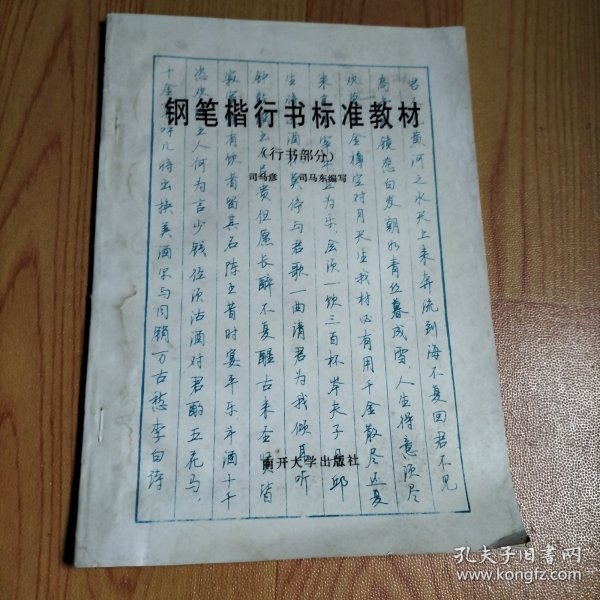 钢笔楷行书标准教材
(行书部分)
司马彦 司马东编写
君黄河之水天上来奔流到海不复回君不见
高镜悲白发朝如青丝暮成雪,人生得意须尽
欢金樽空对月天生我材必有用千金散尽还复
来宰牛且为乐,会须一饮三百杯岑夫子邱
生酒莫停与君歌一曲请君为我倾耳听
钟贵但愿长醉不复醒古来圣贤皆
寂有饮者留其名陈王昔时宴平乐斗酒十千
恣欢主人何为言少钱径须沽酒对君酌五花马,
千金呼儿将出换美酒尔与同销万古愁李白诗
南开大学出版社
孔夫子旧书网
www.kongfz.com